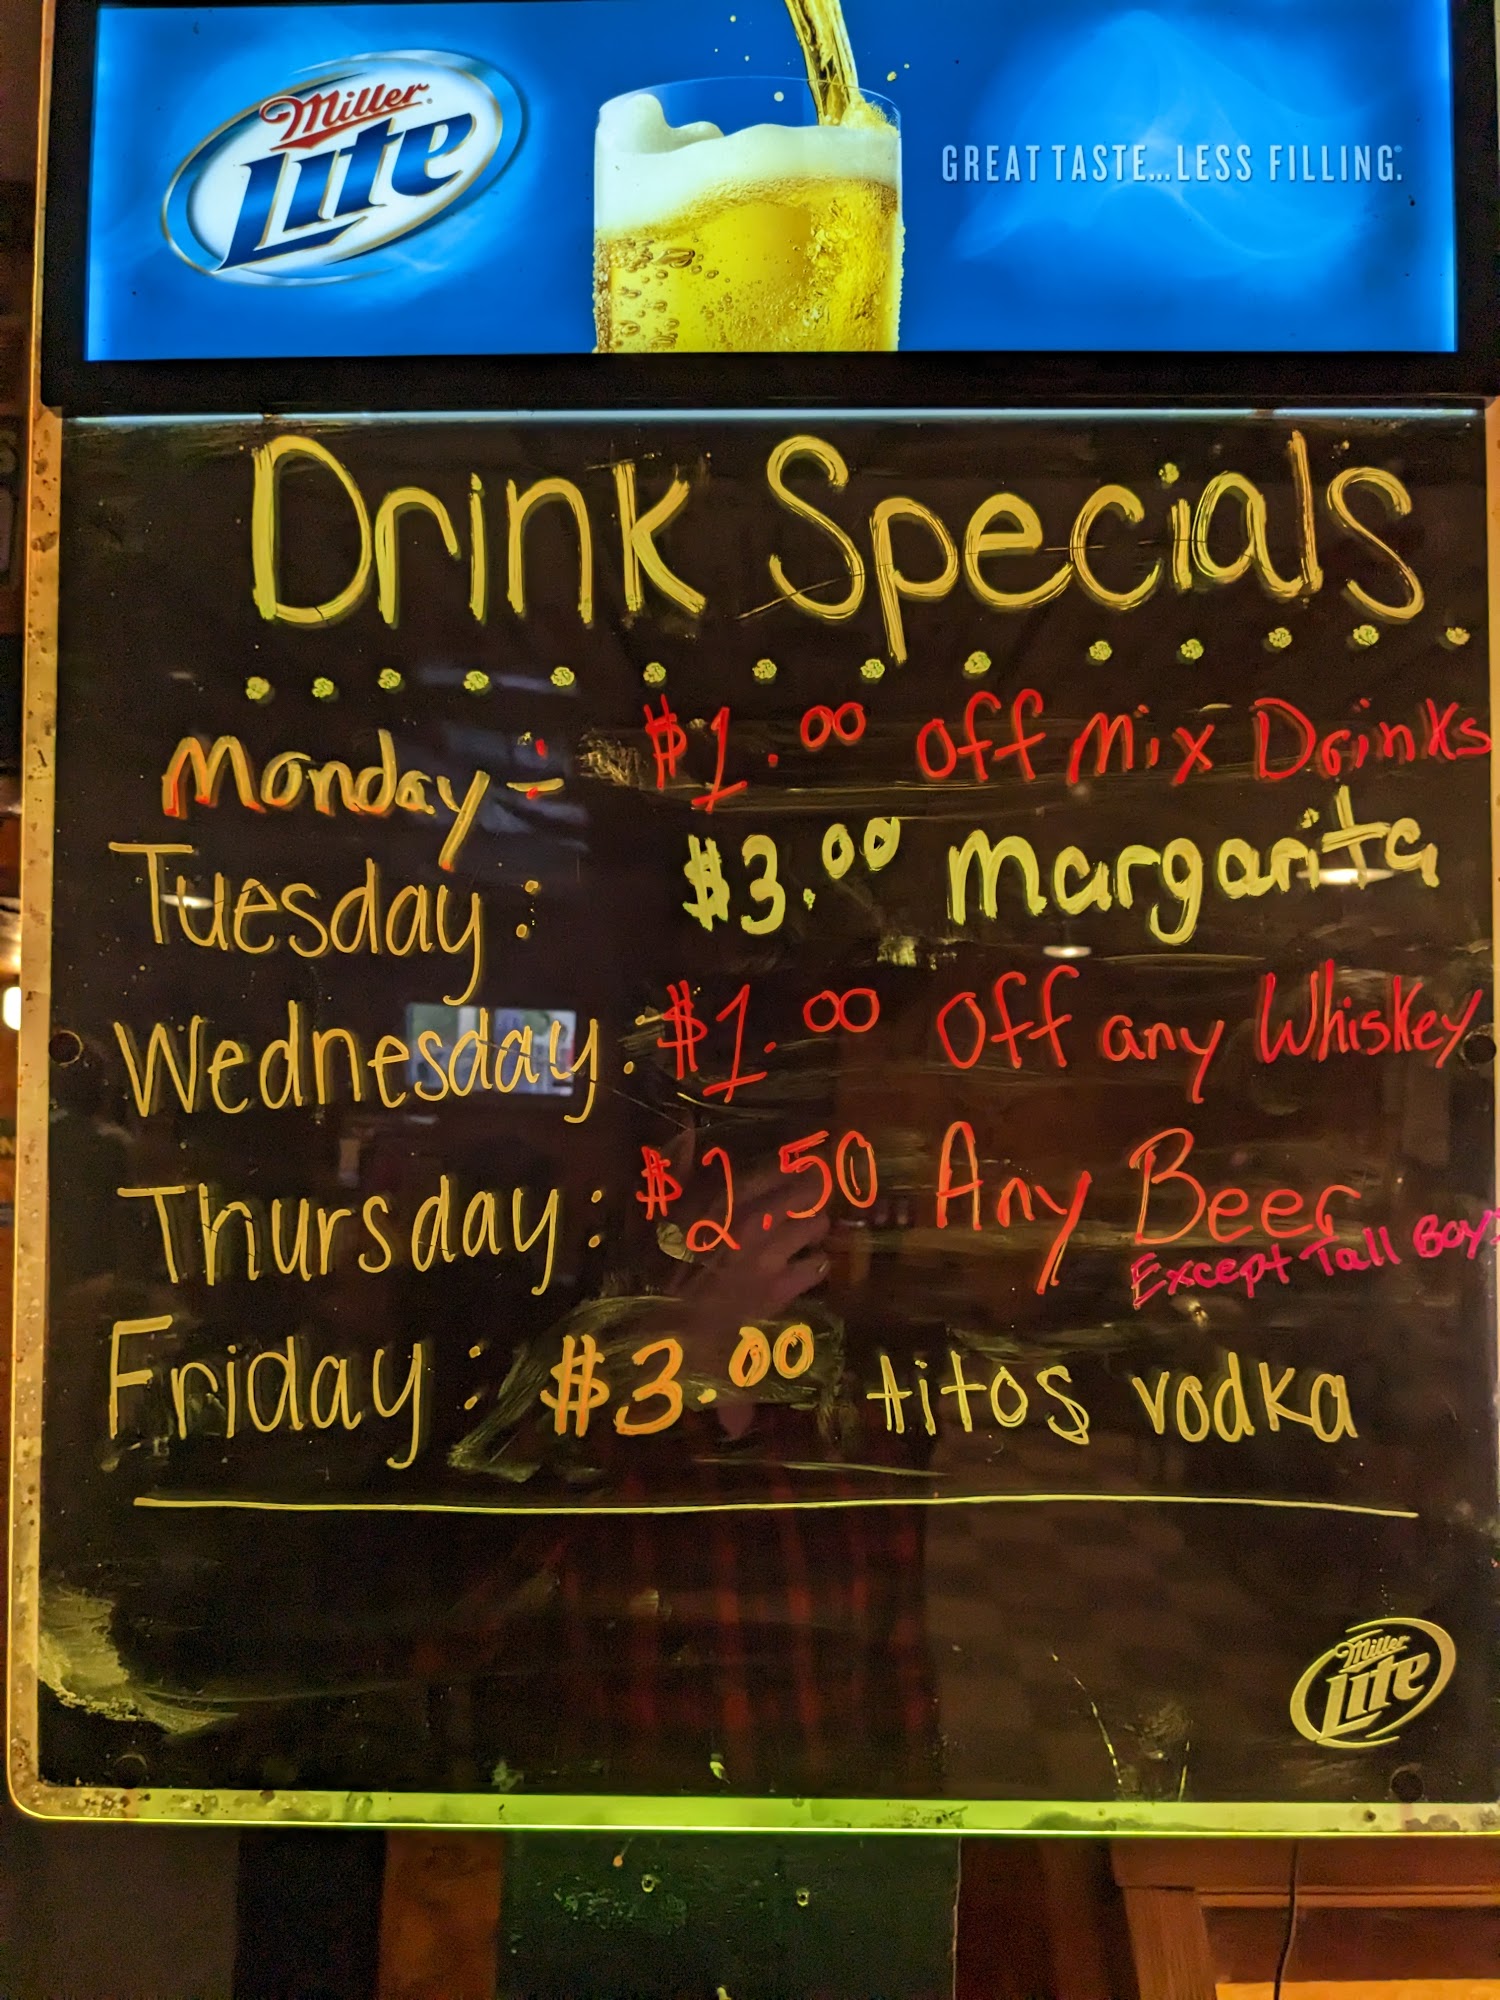 Miller
Lite
GREAT TASTE...LESS FILLING.®
Drink Specials
Monday: $1.00 Off Mix Drinks
Tuesday: $3.00 Margarita
Wednesday: $1.00 Off any Whiskey
Thursday: $2.50 Any Beer
Except Tall Boys
Friday: $3.00 titos vodka
Miller
Lite